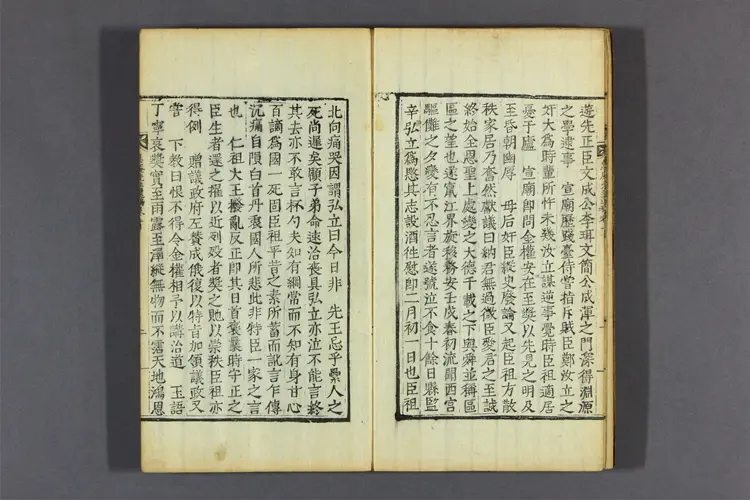 遊先正臣文成公李珥文簡公成渾之門深得淵源
之學逮事 宣廟歷踐臺侍嘗指斥賊臣鄭汝立之
奸大爲時輩所忤未幾汝立謀逆事覺時臣祖適居
憂于廬 宣廟即問金權安在至奬以先見之明及
至昏朝幽辱 母后奸臣縱臾廢論又起臣祖方散
秩家居乃奮然獻議曰納君無過微臣愛君之至誠
終始全恩聖上處變之大德千載之下與舜並稱區
區之望也遂竄江界旋移務安壬戌春初流聞西宮
驅儺之夕變有不忍言者遂號泣不食十餘日縣監
辛弘立爲愍其志設酒徃慰即二月初一日也臣祖
北向痛哭因謂弘立曰今日非 先王忌乎纍人之
死尚遲矣顧子弟命速治喪具弘立亦泣不能言終
其去亦不敢言杯勺夫知有綱常而不知有身甘心
百謫爲國一死固臣祖平昔之素所蓄而訛言乍傳
沉痛自隕白首丹衷國人所悲此非特臣一家之言
也 仁祖大王撥亂反正即其日首褒曩時守正之
臣生者還之擢以近列歿者奬之貤以崇秩臣祖亦
得例 贈議政府左贊成俄復以特旨加領議政又
嘗 下教曰恨不得令金權相予以講治道 玉語
丁寧哀奬實至雨露至澤縱無物而不霑天地鴻恩